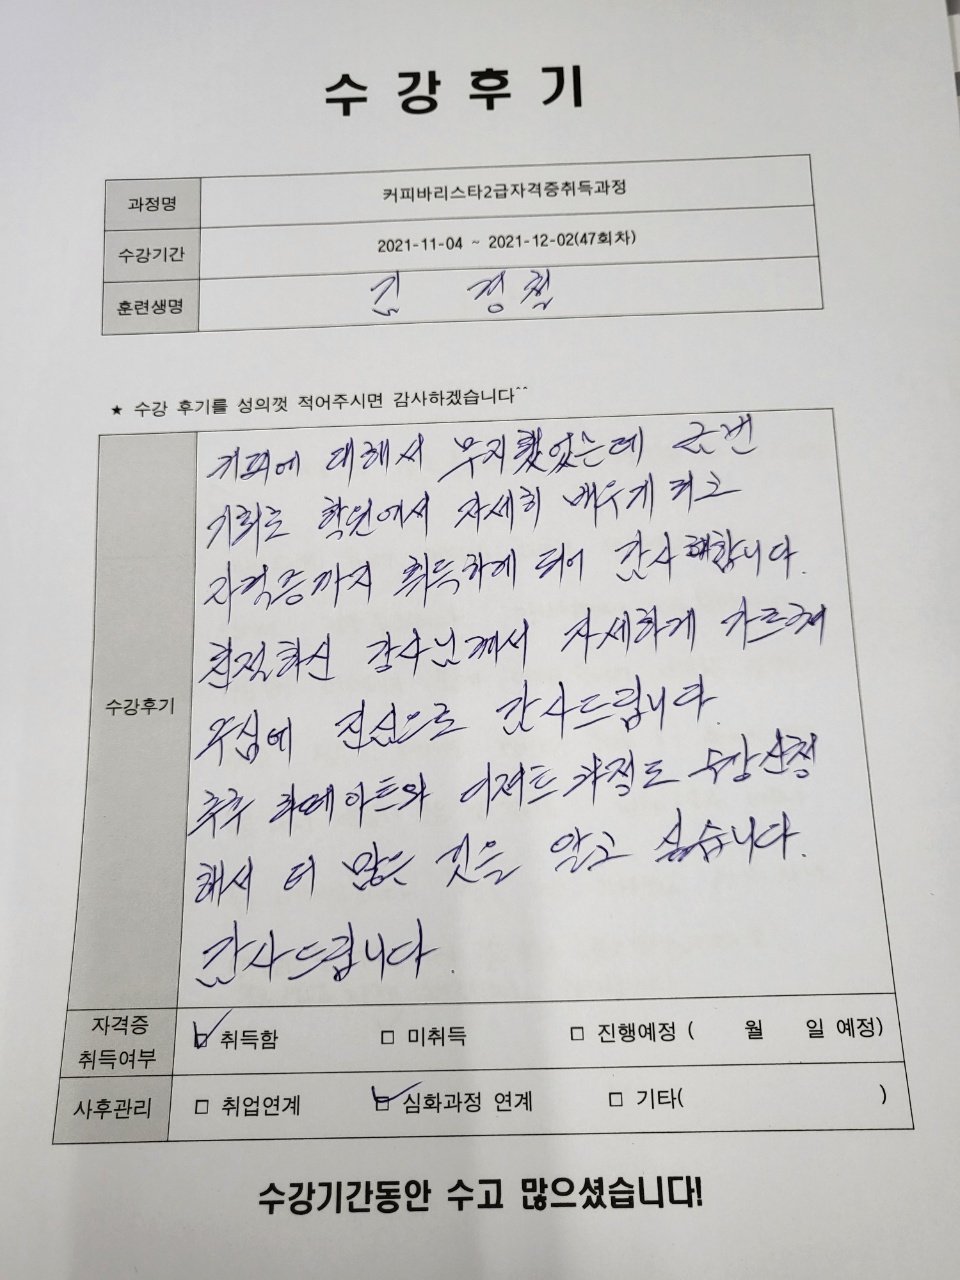 수강후기
과정명 커피바리스타2급자격증취득과정
수강기간 2021-11-04 ~ 2021-12-02(47회차)
훈련생명 김 정철
★ 수강 후기를 성의껏 적어주시면 감사하겠습니다^^
수강후기
커피에 대해서 무지했었는데 금번
기회로 학원에서 자세히 배우게 되고
자격증까지 취득하게 되어 감사해합니다.
친절하신 강사님께서 자세하게 가르쳐
주심에 진심으로 감사드립니다.
추후 라떼아트와 디저트 과정도 수강신청
해서 더 많은 것을 알고 싶습니다.
감사드립니다.
자격증 취득여부 ☑ 취득함 □ 미취득 □ 진행예정 ( 월 일 예정)
사후관리 □ 취업연계 ☑ 심화과정 연계 □ 기타( )
수강기간동안 수고 많으셨습니다!